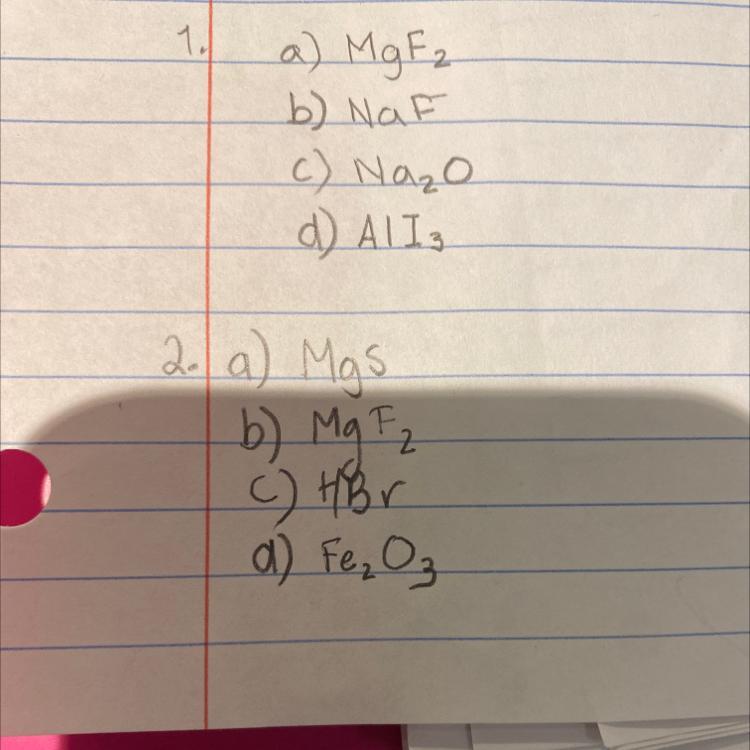 1. a) MgF₂
b) NaF
c) Na₂O
d) AlI₃
2. a) MgS
b) MgF₂
c) HBr
d) Fe₂O₃